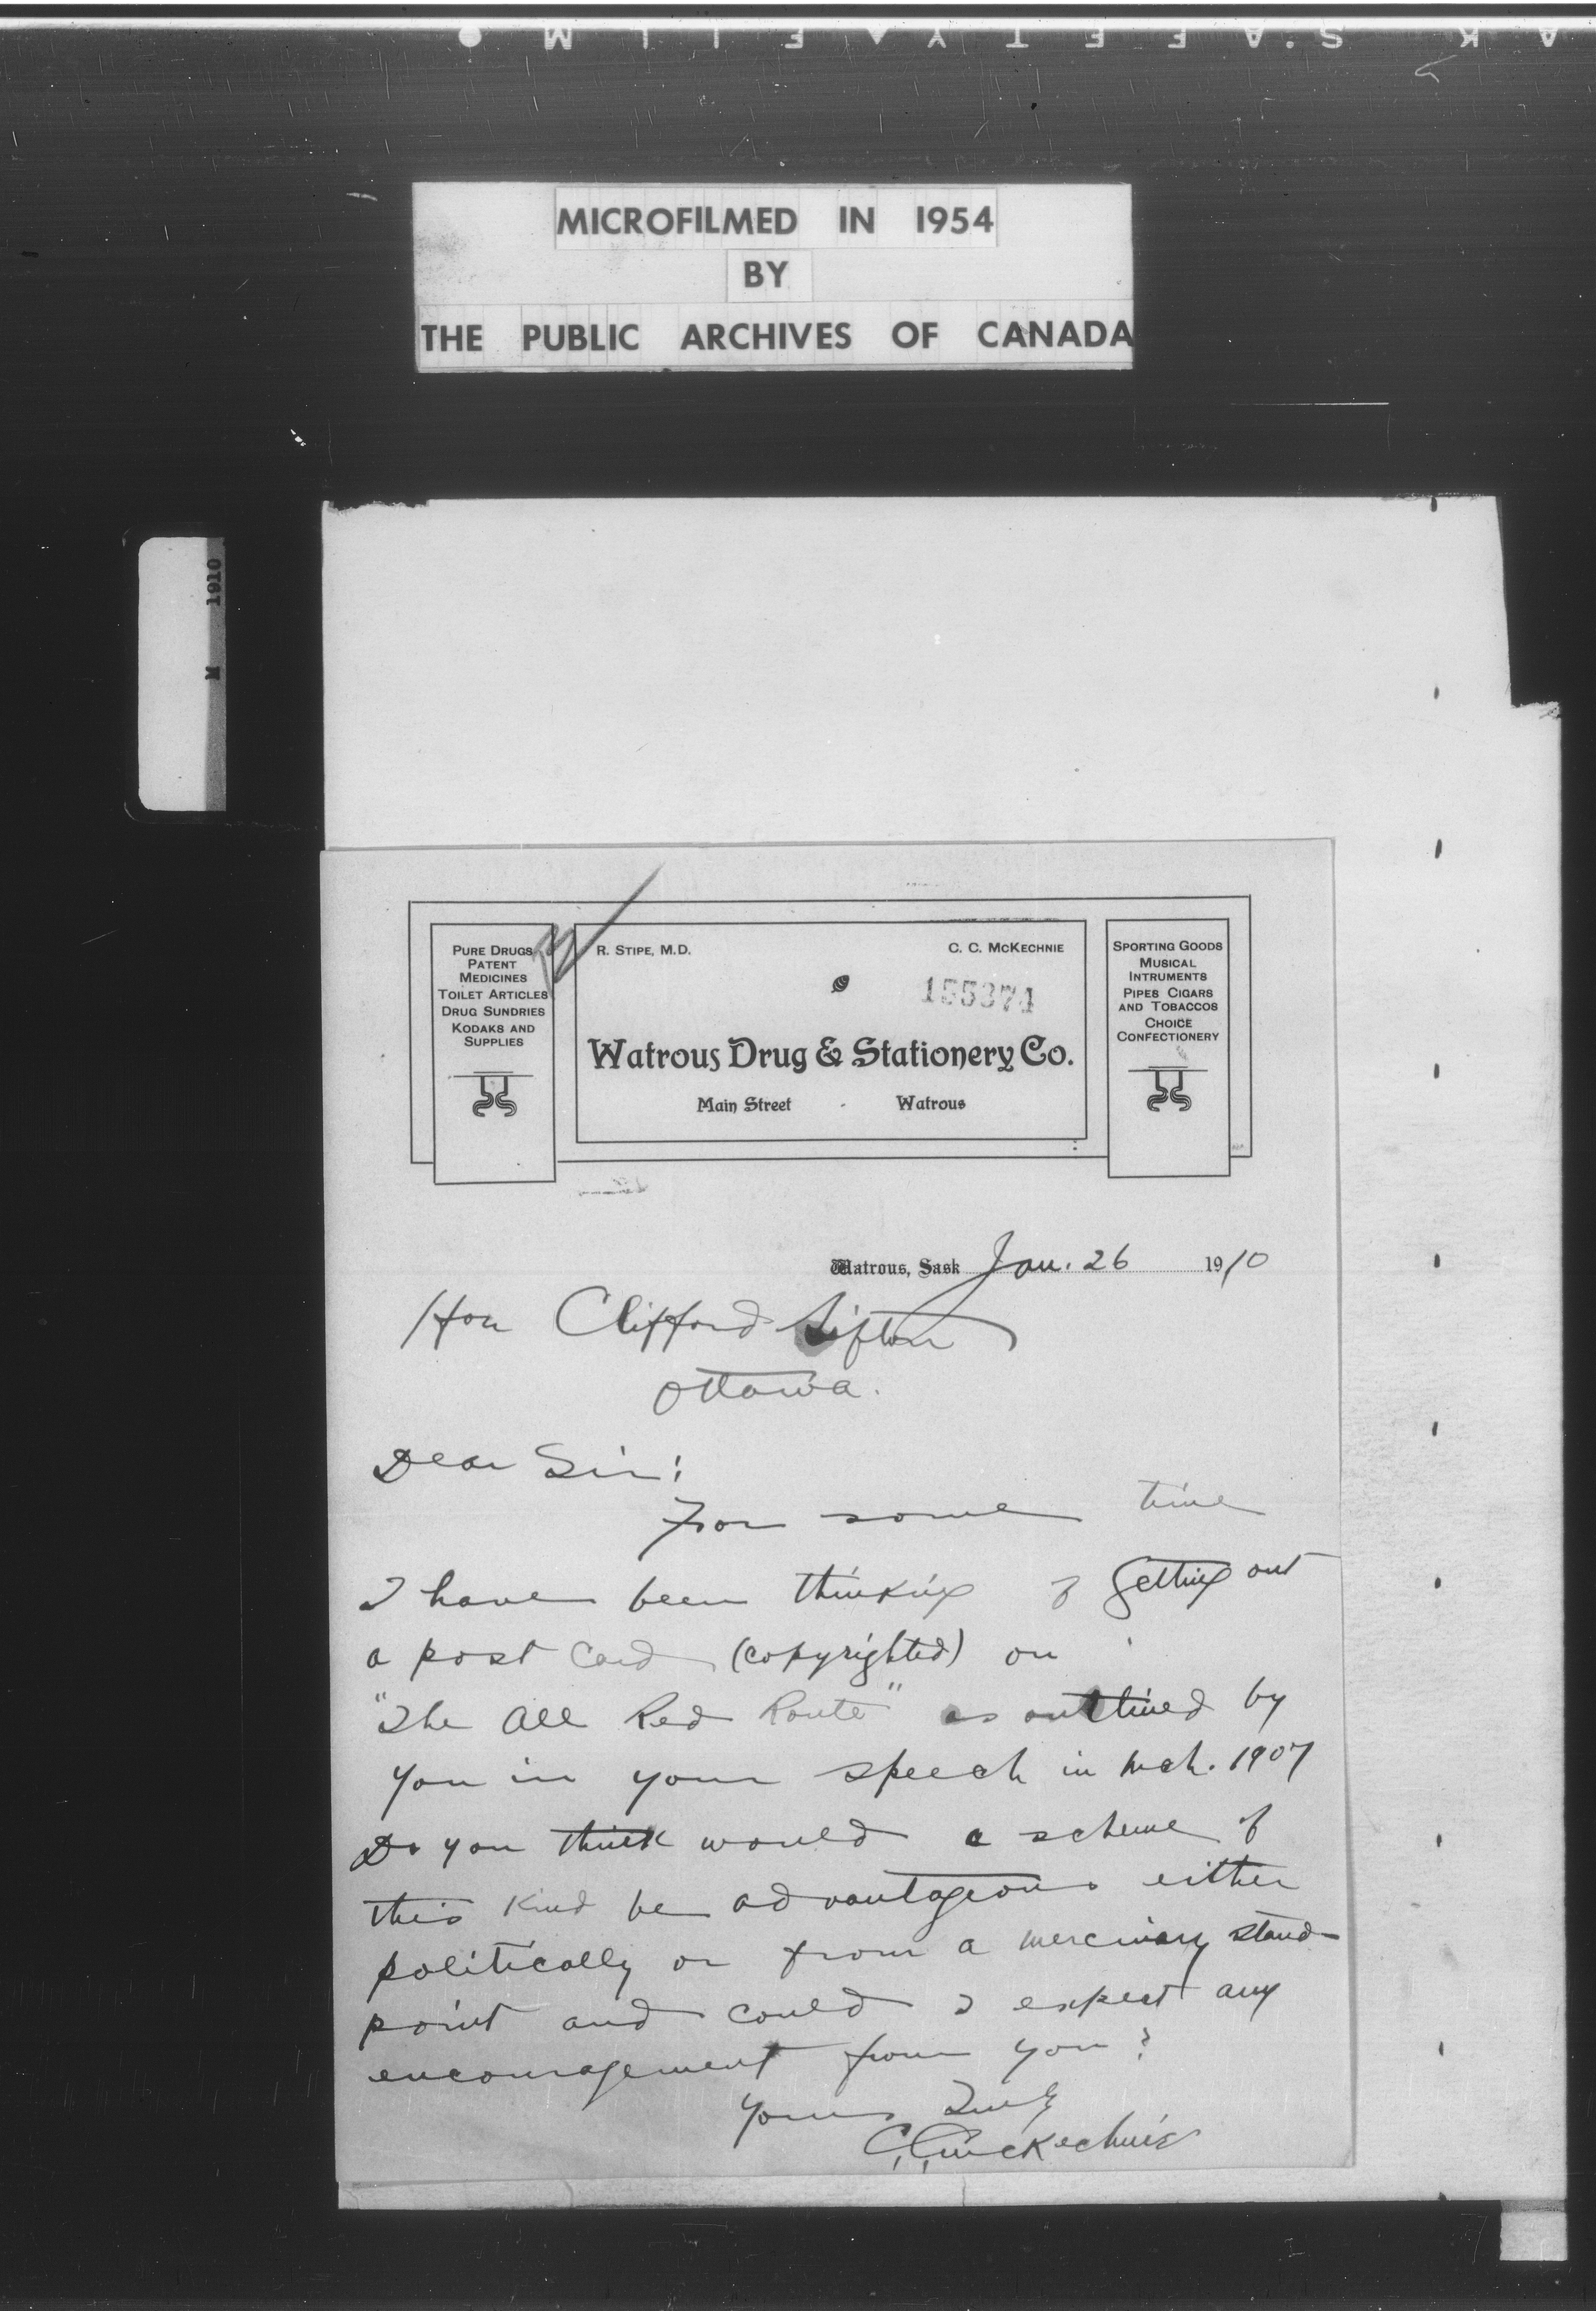 K SAFETY ▲ FILM ●
MICROFILMED IN 1954
BY
THE PUBLIC ARCHIVES OF CANADA
M 1910
PURE DRUGS
PATENT
MEDICINES
TOILET ARTICLES
DRUG SUNDRIES
KODAKS AND
SUPPLIES
R. STIPE, M.D.
C. C. MCKECHNIE
155374
Watrous Drug & Stationery Co.
Main Street - Watrous
SPORTING GOODS
MUSICAL
INTRUMENTS
PIPES CIGARS
AND TOBACCOS
CHOICE
CONFECTIONERY
Watrous, Sask Jan. 26 1910
Hon Clifford Sifton
Ottawa.
Dear Sir:
For some time
I have been thinking of getting out
a post card (copyrighted) on
"The All Red Route" as outlined by
you in your speech in Mch. 1907
Do you think would a scheme of
this kind be advantageous either
politically or from a mercinary stand-
point and could I expect any
encouragement from you?
Yours Truly
C.C. McKechnie